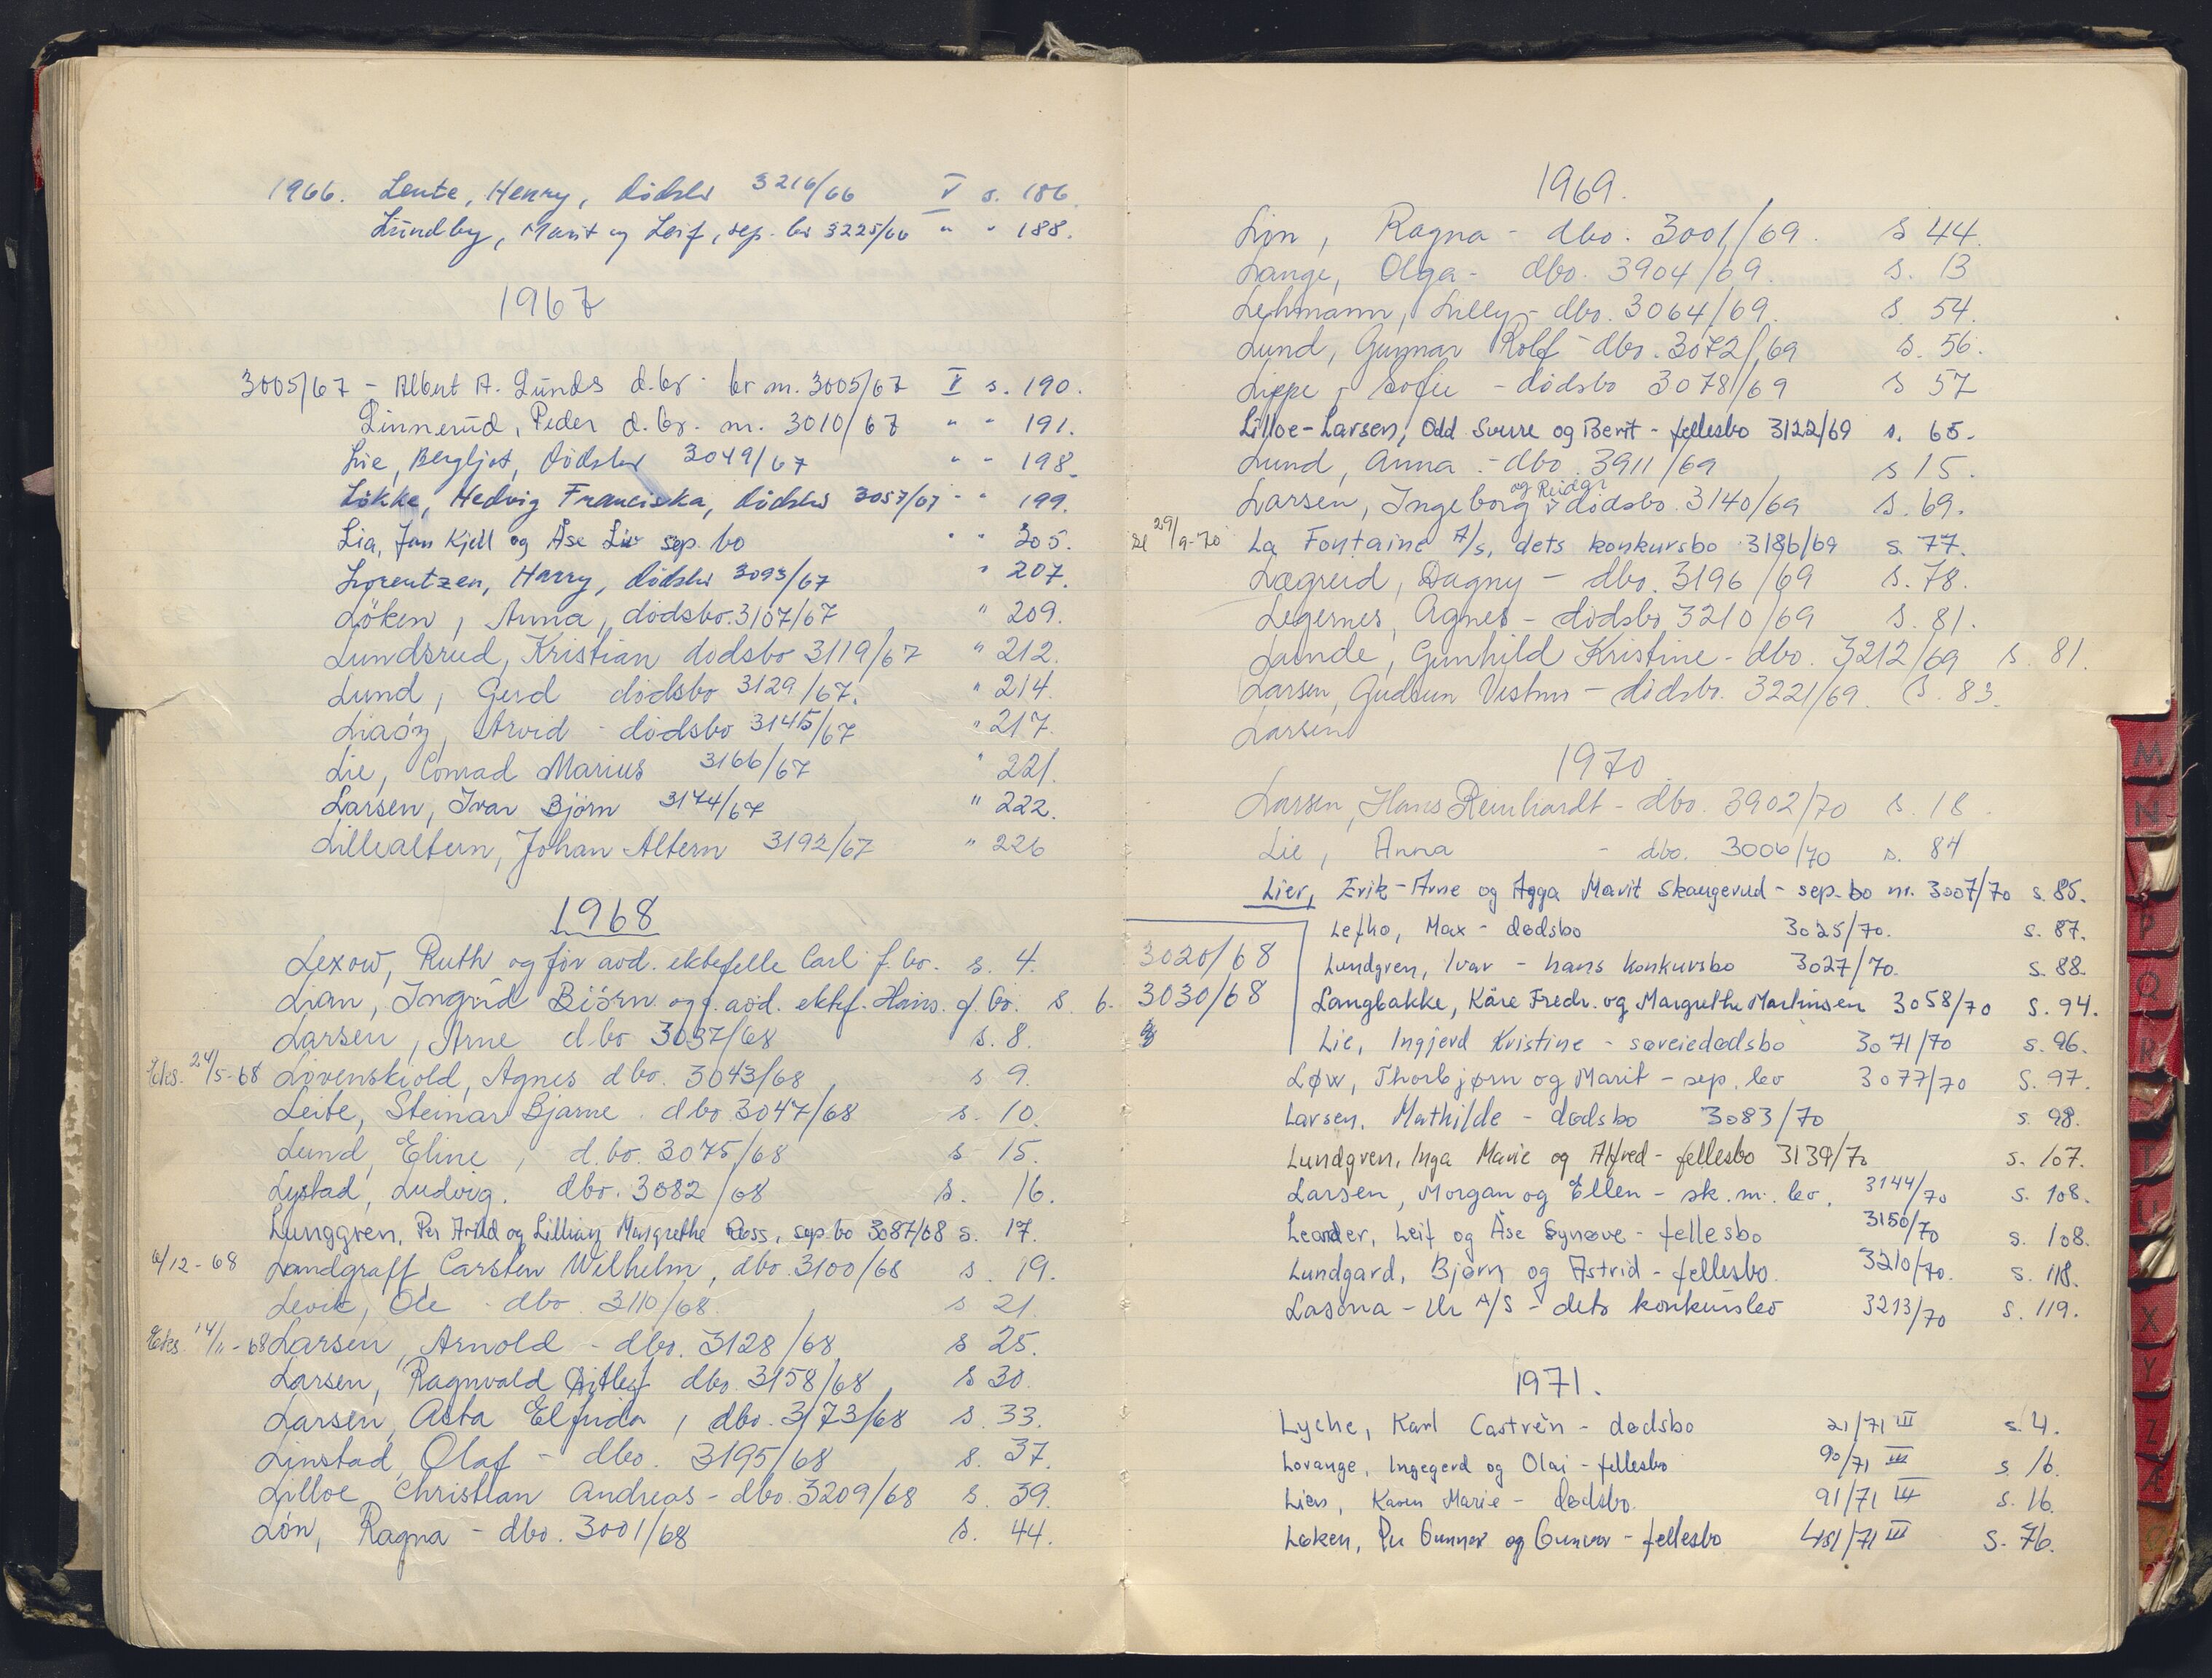 1966. Lente, Henry, dødsbo 3216/66 V s. 186.
Lundby, Marit og Leif, sep. bo 3225/66 " " 188.
1967
3005/67 - Albert A. Lunds d.bo - bo nr. 3005/67 V s. 190.
Linnerud, Peder d.bo. nr. 3010/67 " " 191.
Lie, Bergljot, dødsbo 3049/67 " " 198.
Løkke, Hedvig Franciska, dødsbo 3057/67 " " 199.
Lia, Jan Kjell og Åse Liv sep. bo " " 205.
Lorentzen, Harry, dødsbo 3093/67 " 207.
Löken, Anna, dödsbo. 3107/67 " 209.
Lundsrud, Kristian dödsbo 3119/67 " 212.
Lund, Gerd dödsbo 3129/67. " 214.
Liaöy, Arvid - dödsbo 3145/67 " 217.
Lie, Conrad Marius 3166/67 " 221.
Larsen, Ivar Björn 3174/67 " 222.
Lillealtern, Johan Altern 3192/67 " 226
1968
Lexow, Ruth og før avd. ektefelle Carl f. bo. s. 4. 3020/68
Lian, Ingrid Biörn og f. avd. ektef. Hans. f. bo. s 6. 3030/68
Larsen, Arne d.bo 3037/68 s. 8.
Eks. 24/5-68 Lövenskiold, Agnes dbo. 3043/68 s 9.
Leite, Steinar Bjarne. dbo 3047/68 s. 10.
Lund, Eline, d.bo. 3075/68 s 15.
Lystad, Ludvig. dbo. 3082/68 s. 16.
Lunggren, Per Arild og Lillian Margrethe Ross, sep. bo 3087/68 s. 17.
6/12-68 Landgraff, Carsten Wilhelm, dbo. 3100/68 s. 19.
Levik, Ole - dbo. 3110/68. s 21.
Eks. 14/11-68 Larsen, Arnold - dbo. 3128/68 s 25.
Larsen, Ragnvald Ditlef dbo. 3158/68 s 30.
Larsen, Asta Elfrida, dbo. 3173/68 s. 33.
Linstad, Olaf - dbo. 3195/68 s. 37.
Lilloe, Christian Andreas - dbo. 3209/68 s. 39.
Lön, Ragna - dbo. 3001/68 s. 44.
1969.
Lön, Ragna - dbo. 3001/69. s 44.
Lange, Olga - dbo. 3904/69. s. 13
Lehmann, Lilly - dbo. 3064/69. s. 54.
Lund, Gunnar Rolf - dbo. 3072/69 s. 56.
Lippe, Sofie - dødsbo 3078/69 s 57
Lilloe-Larsen, Odd Sverre og Berit - fellesbo 3122/69 s. 65.
Lund, Anna - dbo. 3911/69 s 15.
Larsen, Ingeborg og Reidar dødsbo. 3140/69 s. 69.
29/9-70 La Fontaine A/s, dets konkursbo 3186/69 s. 77.
Lægreid, Dagny - dbo. 3196/69 s. 78.
Legernes, Agnes - dödsbo 3210/69 s. 81.
Lande, Gunhild Kristine - dbo. 3212/69 s. 81.
Larsen, Gudrun - dödsbo. 3221/69. s. 83.
Larsen
1970
Larsen, Hans Reinhardt - dbo. 3902/70 s. 18.
Lie, Anna - dbo. 3006/70 s. 84
Lier, Erik-Arne og Agga Marit Skaugerud - sep. bo nr. 3007/70 s. 85.
Lefko, Max - dødsbo 3025/70. s. 87.
Lundgren, Ivar - hans konkursbo 3027/70. s. 88.
Langbakke, Kåre Fredr. og Margrethe Martinsen 3058/70 s. 94.
Lie, Ingjerd Kristine - særeiedødsbo 3071/70 s. 96.
Løw, Thorbjørn og Marit - sep. bo 3077/70 s. 97.
Larsen, Mathilde - dødsbo 3083/70 s. 98.
Lundgren, Inga Marie og Alfred - fellesbo 3139/70 s. 107.
Larsen, Morgan og Ellen - sk. m. bo. 3144/70 s. 108.
Leander, Leif og Åse Synøve - fellesbo 3150/70 s. 108.
Lundgard, Bjørn og Astrid - fellesbo. 3210/70. s. 118.
Lasona - Ur A/S - dets konkursbo 3213/70 s. 119.
1971.
Lyche, Karl Castrèn - dødsbo 21/71 III s. 4.
Lovange, Ingegerd og Olai - fellesbo 90/71 III s. 16.
Lien, Karen Marie - dødsbo. 91/71 III s. 16.
Løken, Per Gunnar og Gunvor - fellesbo 451/71 III s. 76.
M
N
P
Q
R
T
U
X
Y
Z
Æ